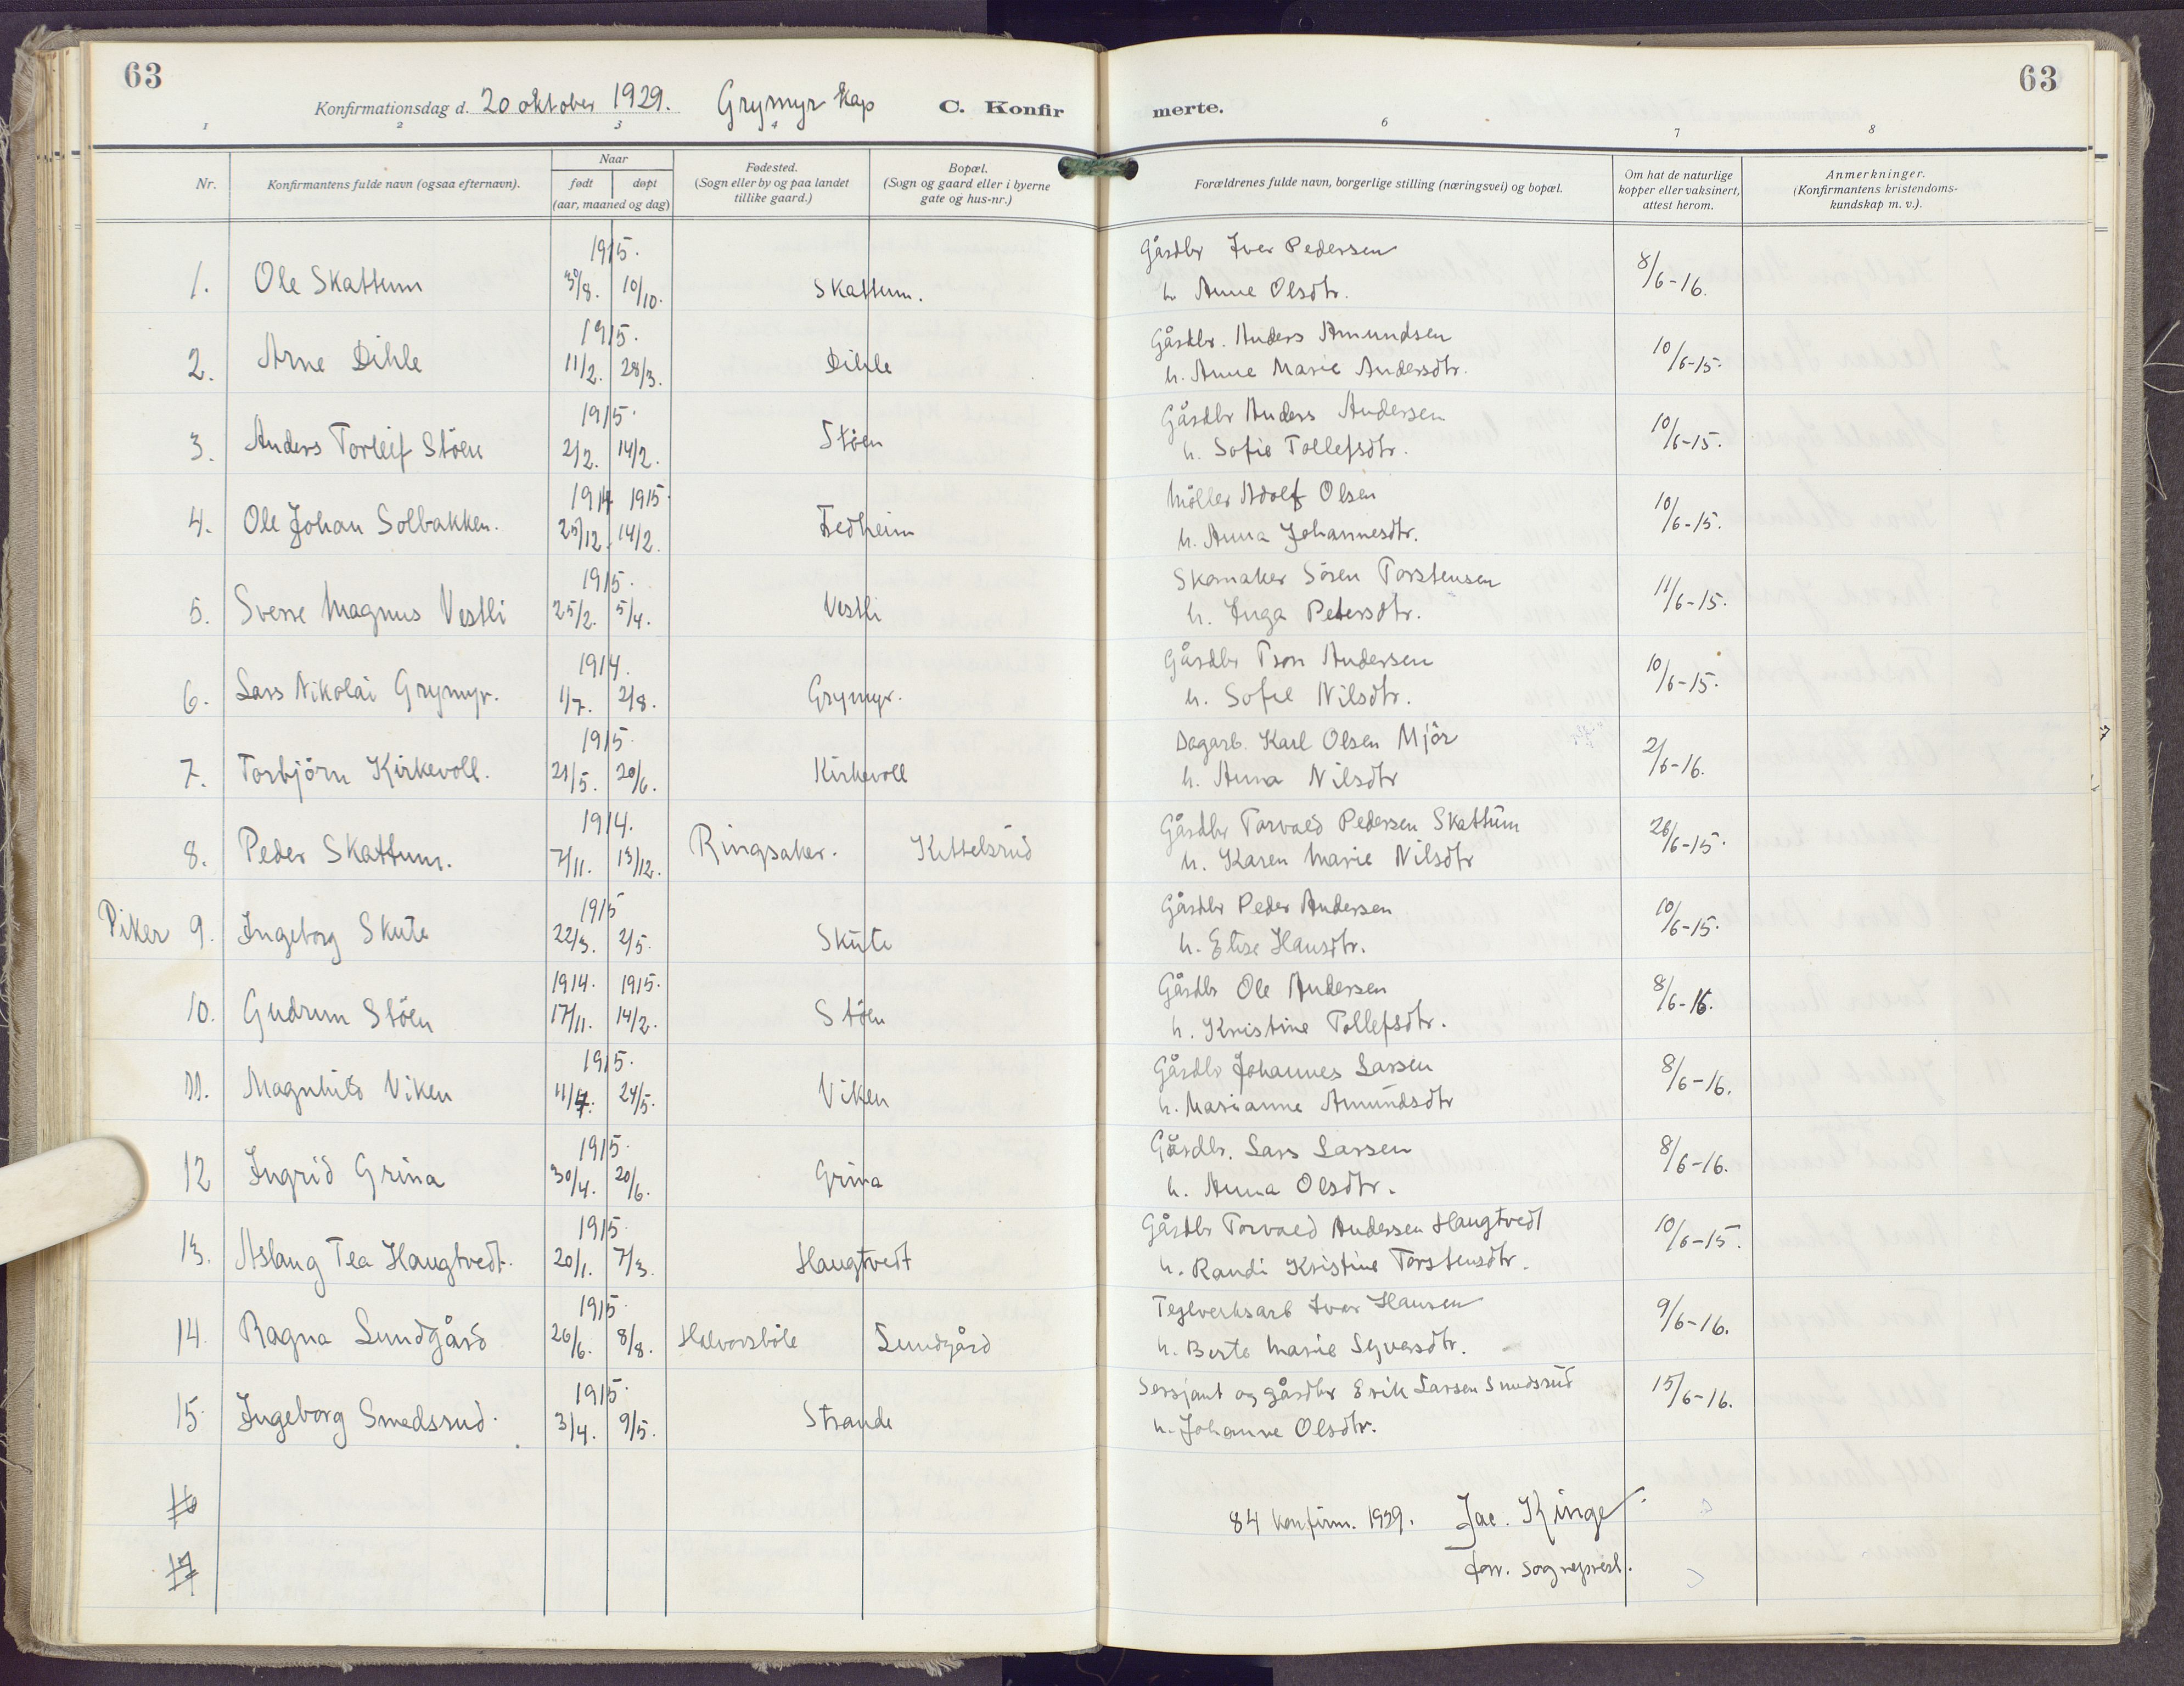 63
63
Konfirmationsdag d. 20 oktober 1929. Grymyr kap C. Konfir merte.
1 2 3 4 6 7 8
Nr.
Konfirmantens fulde navn (ogsaa efternavn).
Naar
født døpt
(aar, maaned og dag)
Fødested.
(Sogn eller by og paa landet
tillike gaard.)
Bopæl.
(Sogn og gaard eller i byerne
gate og hus-nr.)
Forældrenes fulde navn, borgerlige stilling (næringsvei) og bopæl.
Om hat de naturlige
kopper eller vaksinert,
attest herom.
Anmerkninger.
(Konfirmantens kristendoms-
kundskap m. v.).
1915. Gårdbr Iver Pedersen
1. Ole Skattum 30/8. 10/10. Skattum. h. Anne Olsdtr. 8/6-16.
1915. Gårdbr. Anders Amundsen
2. Arne Dihle 11/2. 28/3. Dihle h. Anne Marie Andersdtr. 10/6-15.
1915. Gårdbr Anders Andersen
3. Anders Torleif Stöen 2/2. 14/2. Stöen h. Sofie Tollefsdtr. 10/6-15.
1914 1915. Möller Adolf Olsen
4. Ole Johan Solbakken. 25/12. 14/2. h. Anna Johannesdtr. 10/6-15.
1915. Skomaker Sören Torstensen
5. Sverre Magnus Vestli 25/2. 5/4. Vestli h. Inga Petersdtr. 11/6-15.
1914. Gårdbr Tron Andersen
6. Lars Nikolai Grymyr. 1/7. 2/8. Grymyr. h. Sofie Nilsdtr. 10/6-15.
1915. Dagarb. Karl Olsen Mjör
7. Torbjörn Kirkevoll. 21/5. 20/6. Kirkevoll h. Anna Nilsdtr 2/6-16.
1914. Gårdbr Torvald Pedersen Skattum
8. Peder Skattum. 7/11. 13/12. Ringsaker. Kittelsrud h. Karen Marie Nilsdtr 26/6-15.
1915 Gårdbr Peder Andersen
Piker 9. Ingeborg Skute 22/3. 2/5. Skute h. Elise Hansdtr. 10/6-15.
1914. 1915. Gårdbr Ole Andersen
10. Gudrun Stöen 17/11. 14/2. Stöen h. Kristine Tollefsdtr. 8/6-16.
1915. Gårdbr Johannes Larsen
11. Magnhild Viken 11/4. 24/5. Viken h. Marianne Amundsdtr 8/6-16.
1915. Gårdbr. Lars Larsen
12 Ingrid Grina 30/4. 20/6. Grina h. Anna Olsdtr. 8/6-16.
1915. Gårdbr Torvald Andersen Haugtvedt
13. Aslaug Tea Haugtvedt. 20/1. 7/3. Haugtvedt h. Randi Kristine Torstensdtr. 10/6-15.
1915. Teglverksarb Iver Hansen
14. Ragna Lundgård 26/6. 8/8. Halvorsböle Lundgård h. Berte Marie Syversdtr. 9/6-16.
1915. Sersjant og gårdbr Erik Larsen Smedsrud
15 Ingeborg Smedsrud. 3/4. 9/5. Strande h. Johanne Olsdtr. 15/6-16.
16
84 konfirm. 1929. Jac. Kinge
17
forr. sogneprest.